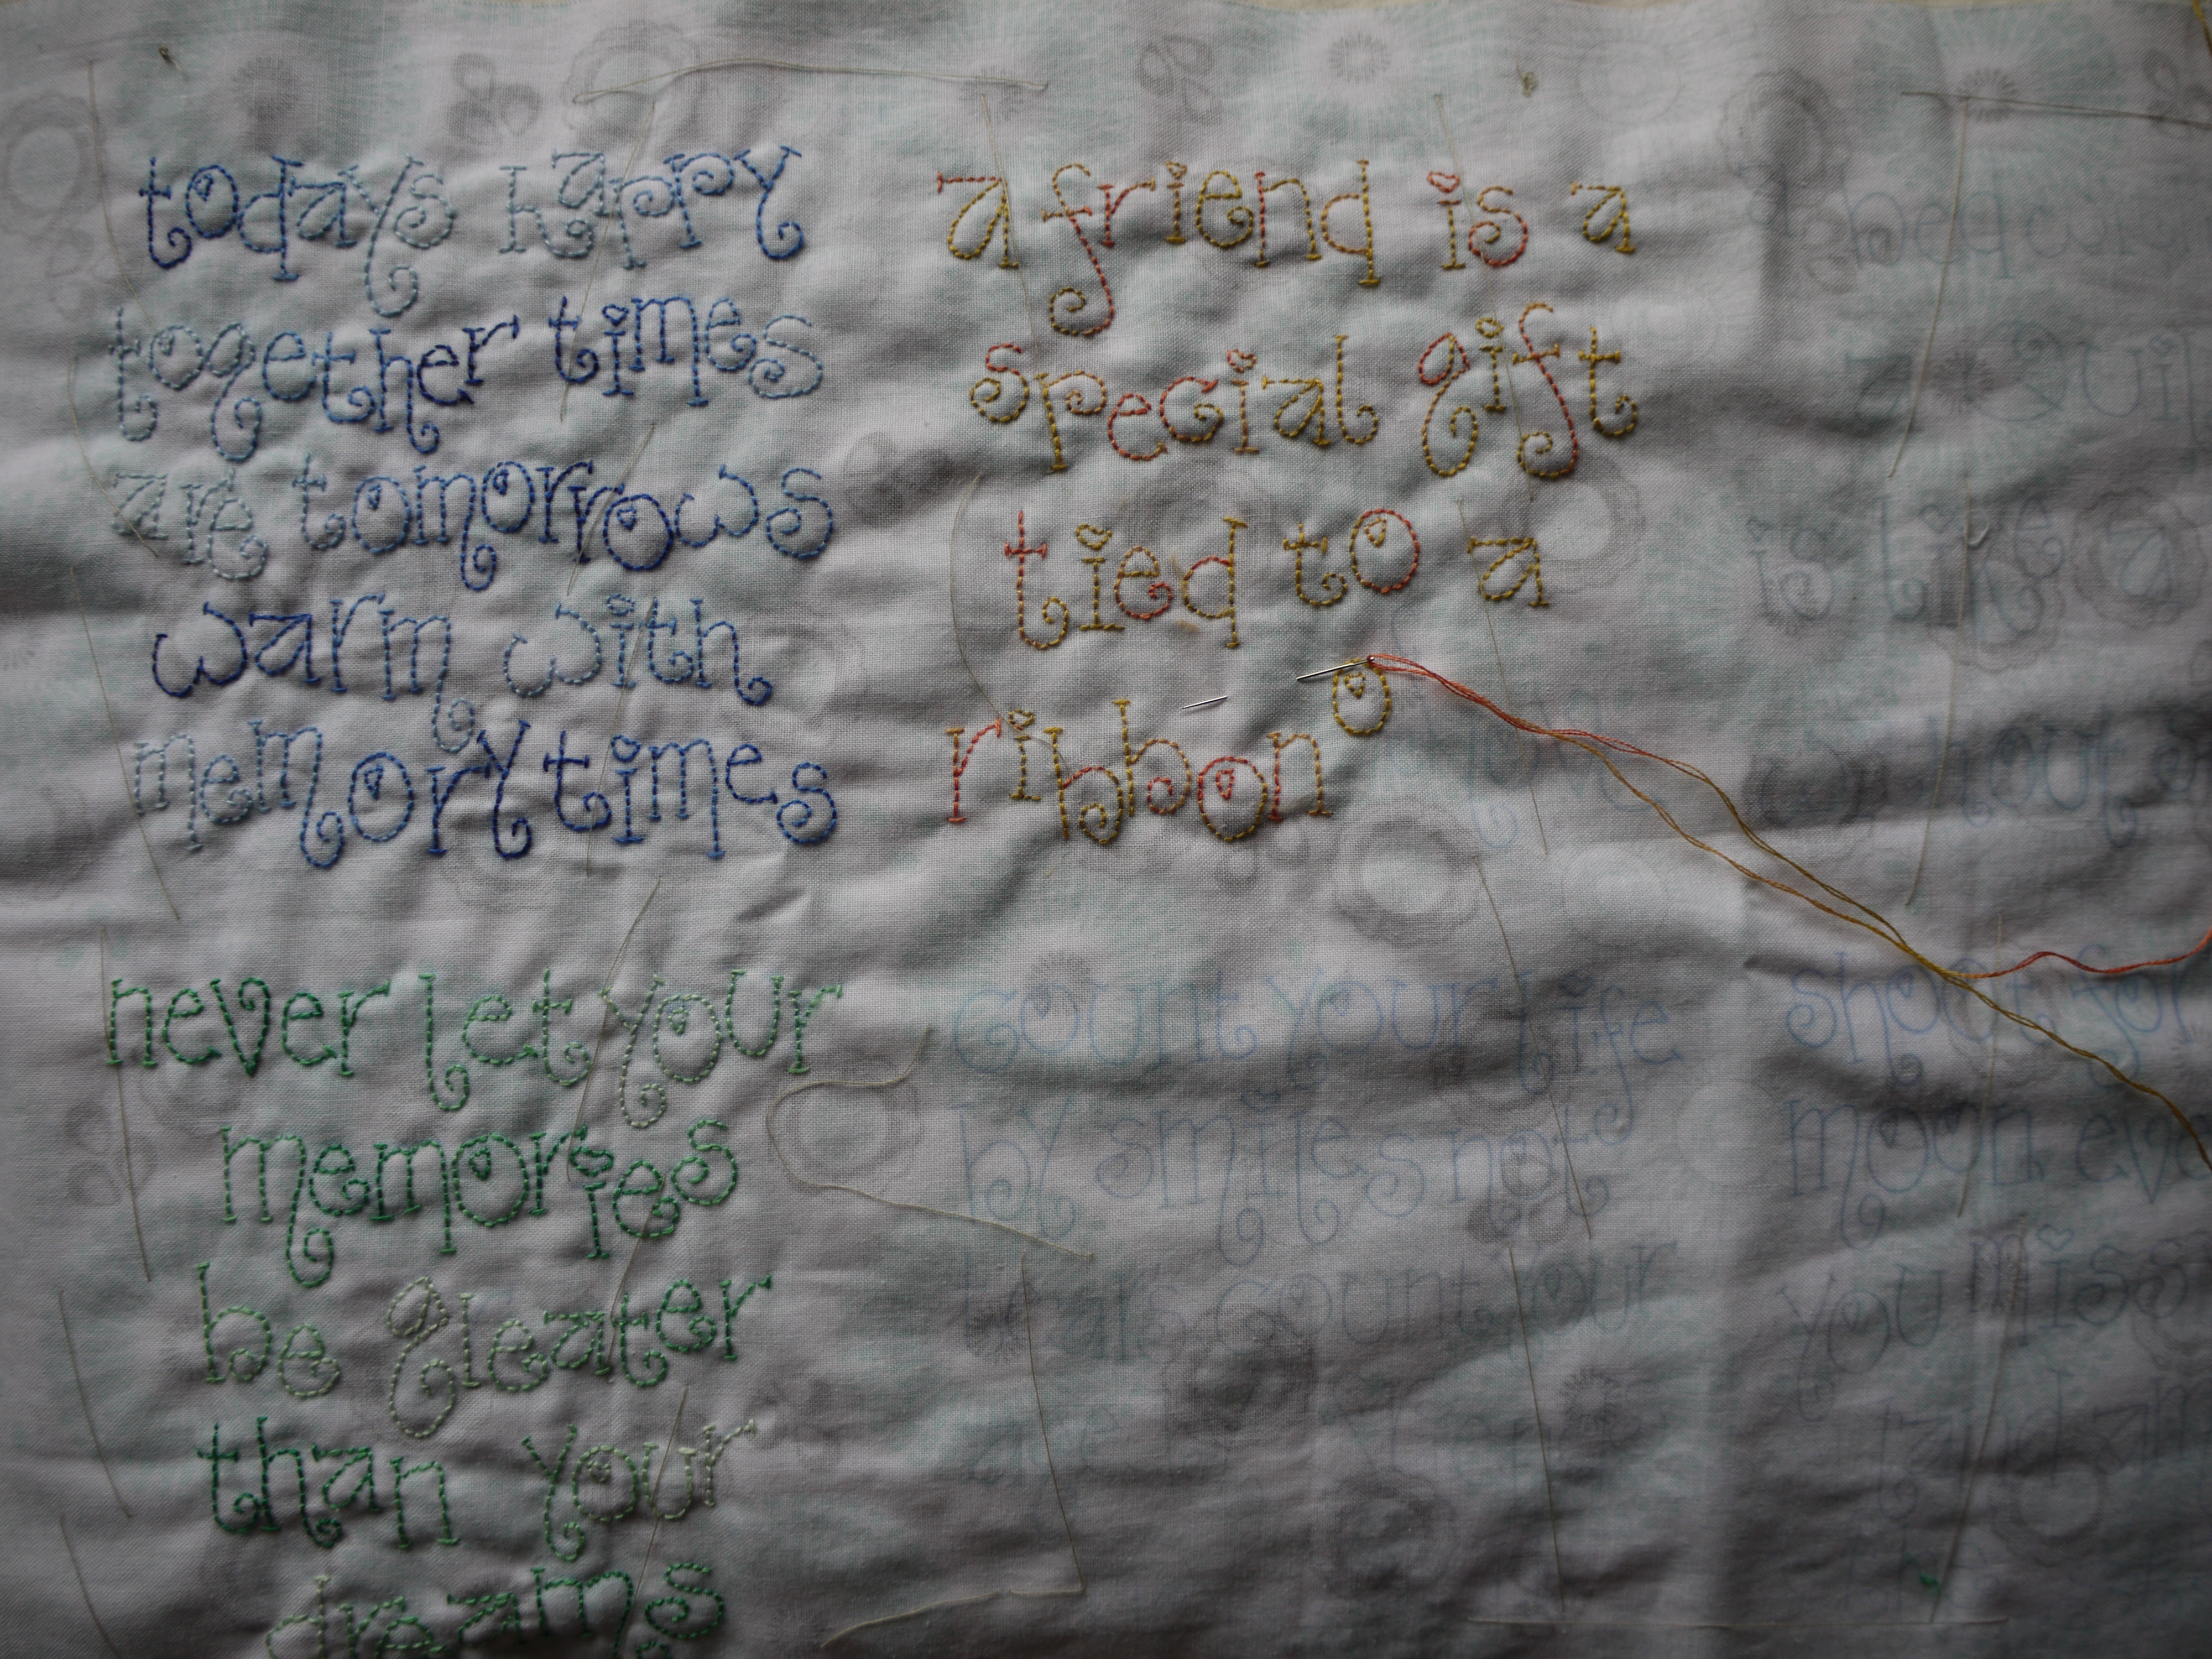 todays happy
together times
are tomorrows
warm with
memorytimes
a friend is a
special gift
tied to a
ribbon o
never let your
memories
be gleater
than your
dreams
count your life
by smiles not
tears count your
age
is like a
shoot for
moon
you miss